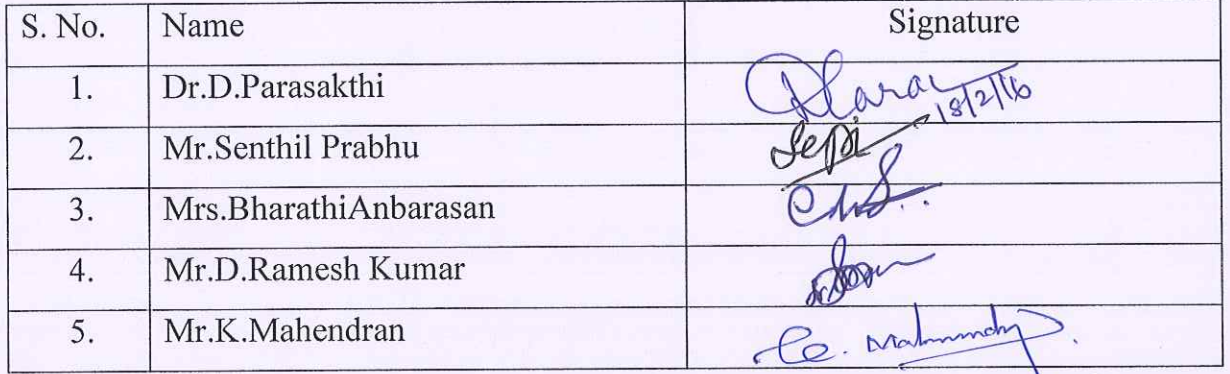 S. No. Name Signature
1. Dr.D.Parasakthi
18/2/16
2. Mr.Senthil Prabhu
3. Mrs.BharathiAnbarasan
4. Mr.D.Ramesh Kumar
5. Mr.K.Mahendran